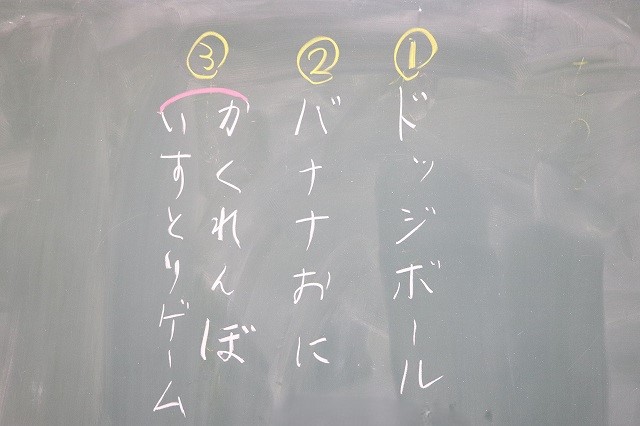 ①ドッジボール
②バナナおに
③かくれんぼ
いすとりゲーム